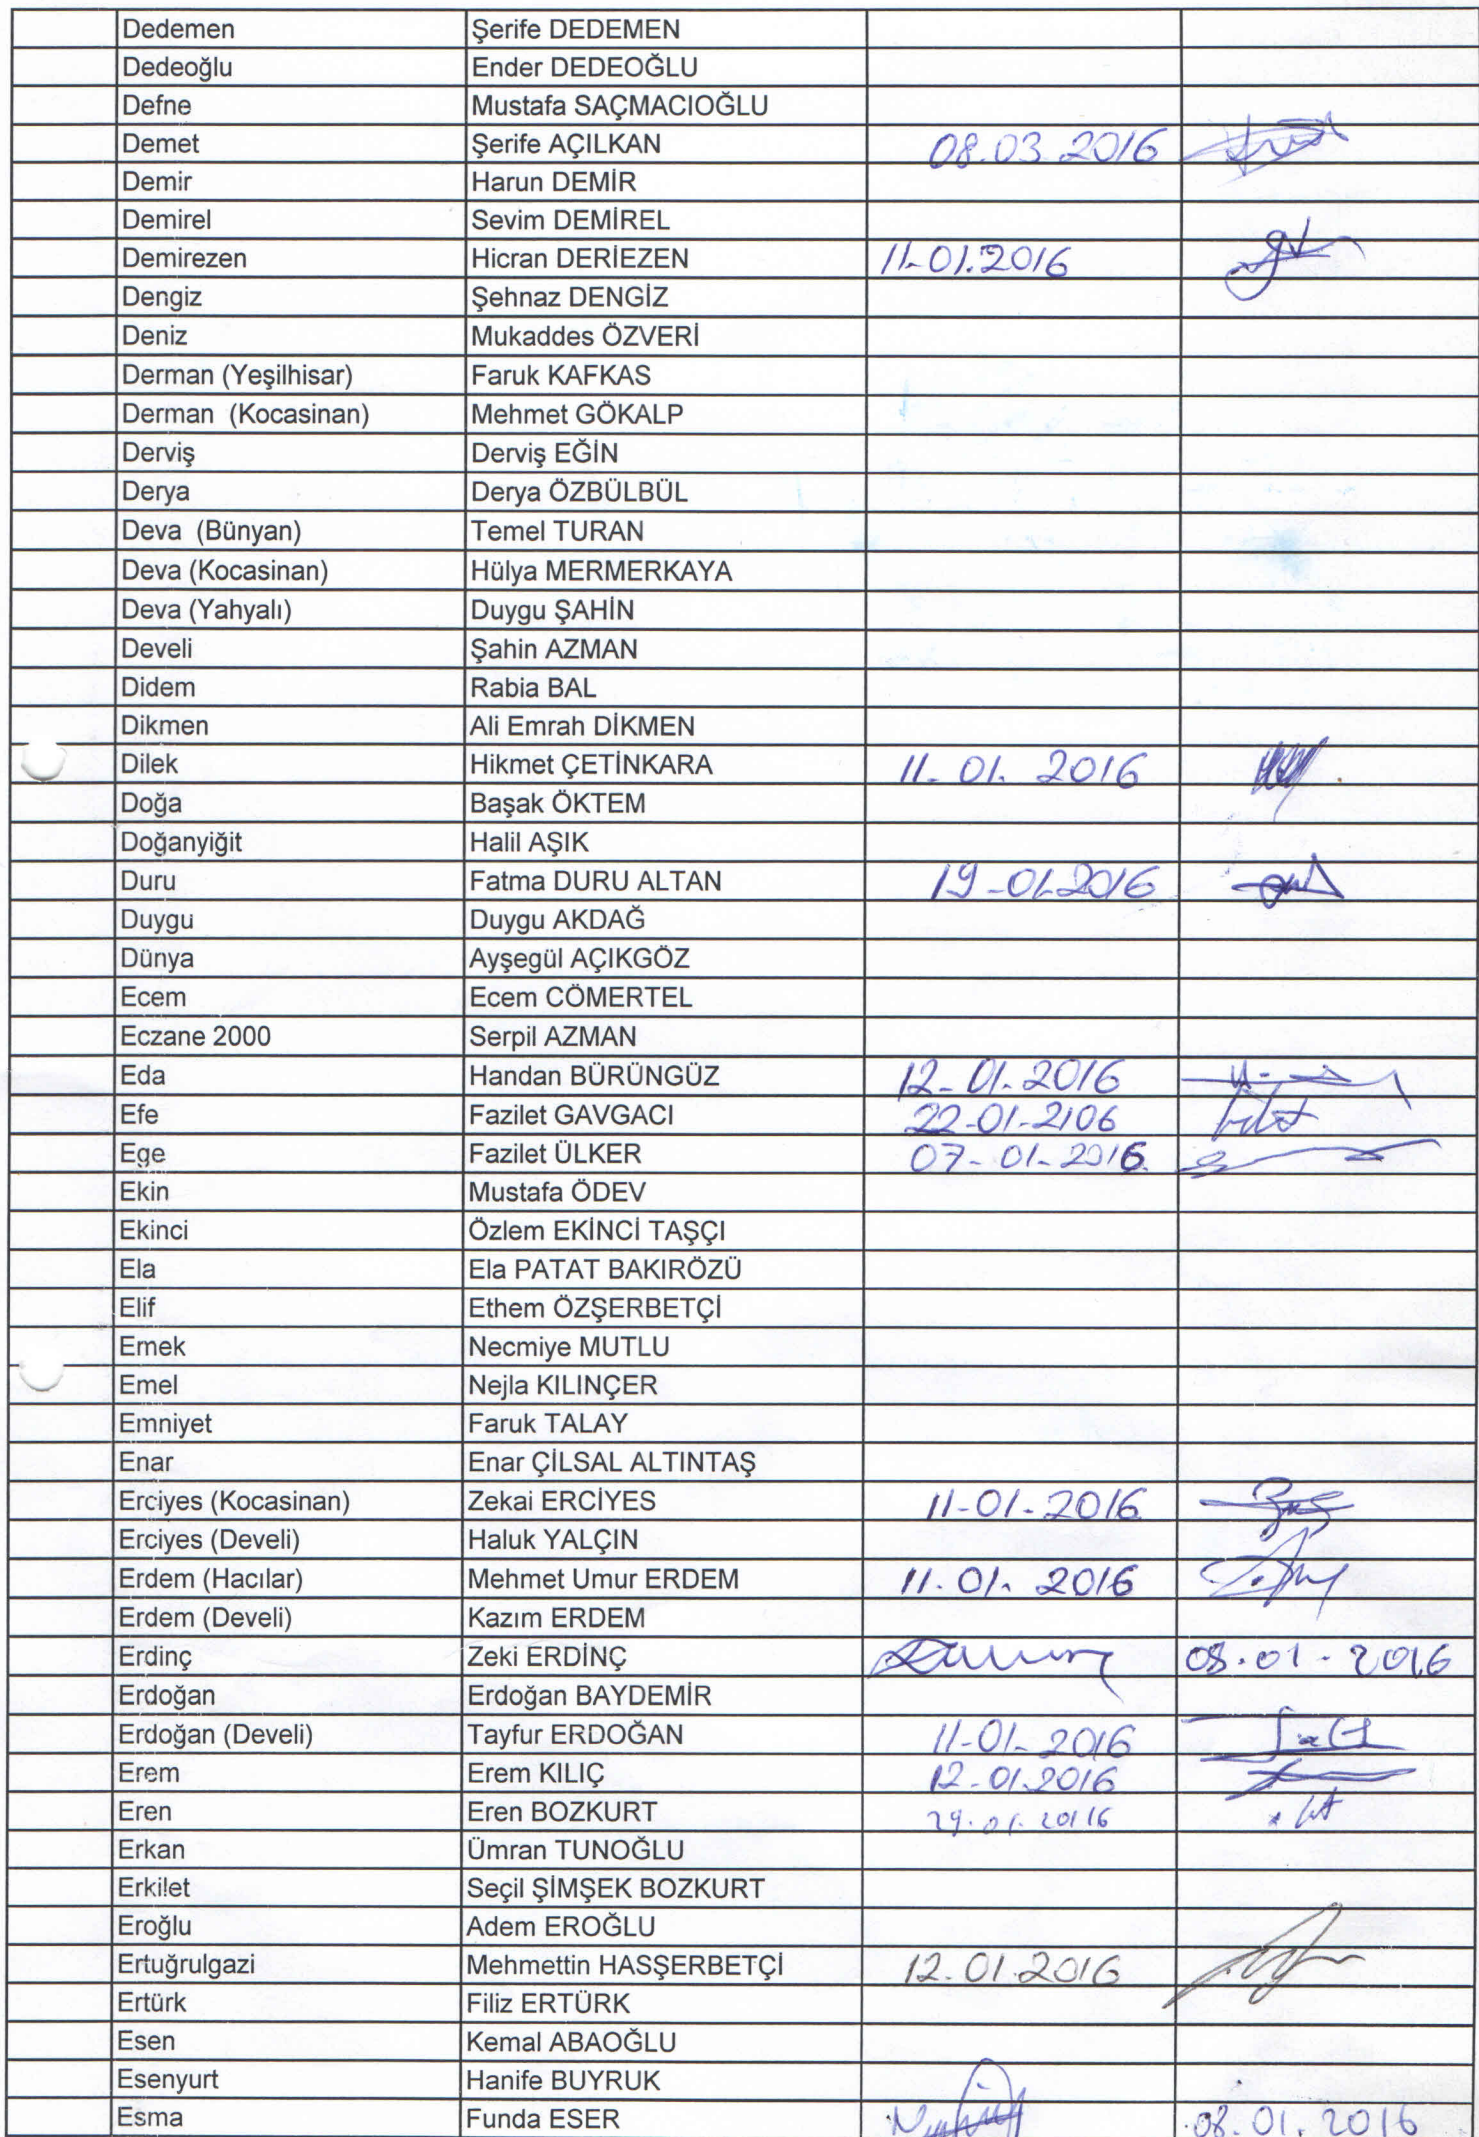 Dedemen Şerife DEDEMEN
Dedeoğlu Ender DEDEOĞLU
Defne Mustafa SAÇMACIOĞLU
Demet Şerife AÇILKAN 08.03.2016
Demir Harun DEMİR
Demirel Sevim DEMİREL
Demirezen Hicran DERİEZEN 11.01.2016
Dengiz Şehnaz DENGİZ
Deniz Mukaddes ÖZVERİ
Derman (Yeşilhisar) Faruk KAFKAS
Derman (Kocasinan) Mehmet GÖKALP
Derviş Derviş EĞİN
Derya Derya ÖZBÜLBÜL
Deva (Bünyan) Temel TURAN
Deva (Kocasinan) Hülya MERMERKAYA
Deva (Yahyalı) Duygu ŞAHİN
Develi Şahin AZMAN
Didem Rabia BAL
Dikmen Ali Emrah DİKMEN
Dilek Hikmet ÇETİNKARA 11.01.2016
Doğa Başak ÖKTEM
Doğanyiğit Halil AŞIK
Duru Fatma DURU ALTAN 19-01.2016
Duygu Duygu AKDAĞ
Dünya Ayşegül AÇIKGÖZ
Ecem Ecem CÖMERTEL
Eczane 2000 Serpil AZMAN
Eda Handan BÜRÜNGÜZ 12-01.2016
Efe Fazilet GAVGACI 22-01-2106
Ege Fazilet ÜLKER 07-01-2016
Ekin Mustafa ÖDEV
Ekinci Özlem EKİNCİ TAŞÇI
Ela Ela PATAT BAKIRÖZÜ
Elif Ethem ÖZŞERBETÇİ
Emek Necmiye MUTLU
Emel Nejla KILINÇER
Emniyet Faruk TALAY
Enar Enar ÇİLSAL ALTINTAŞ
Erciyes (Kocasinan) Zekai ERCİYES 11-01-2016
Erciyes (Develi) Haluk YALÇIN
Erdem (Hacılar) Mehmet Umur ERDEM 11.01.2016
Erdem (Develi) Kazım ERDEM
Erdinç Zeki ERDİNÇ 08.01-2016
Erdoğan Erdoğan BAYDEMİR
Erdoğan (Develi) Tayfur ERDOĞAN 11-01-2016
Erem Erem KILIÇ 12-01.2016
Eren Eren BOZKURT 29.01.20116
Erkan Ümran TUNOĞLU
Erkilet Seçil ŞİMŞEK BOZKURT
Eroğlu Adem EROĞLU
Ertuğrulgazi Mehmettin HASŞERBETÇİ 12.01.2016
Ertürk Filiz ERTÜRK
Esen Kemal ABAOĞLU
Esenyurt Hanife BUYRUK
Esma Funda ESER 08.01.2016